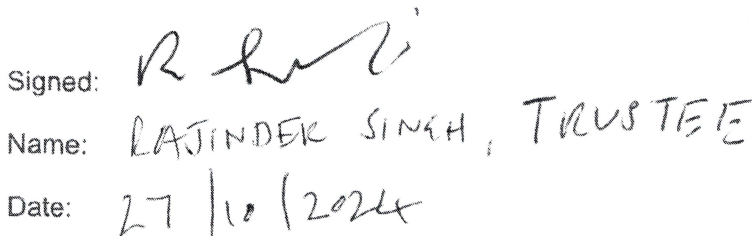 Signed:
Name: RAJINDER SINGH, TRUSTEE
Date: 27/10/2024